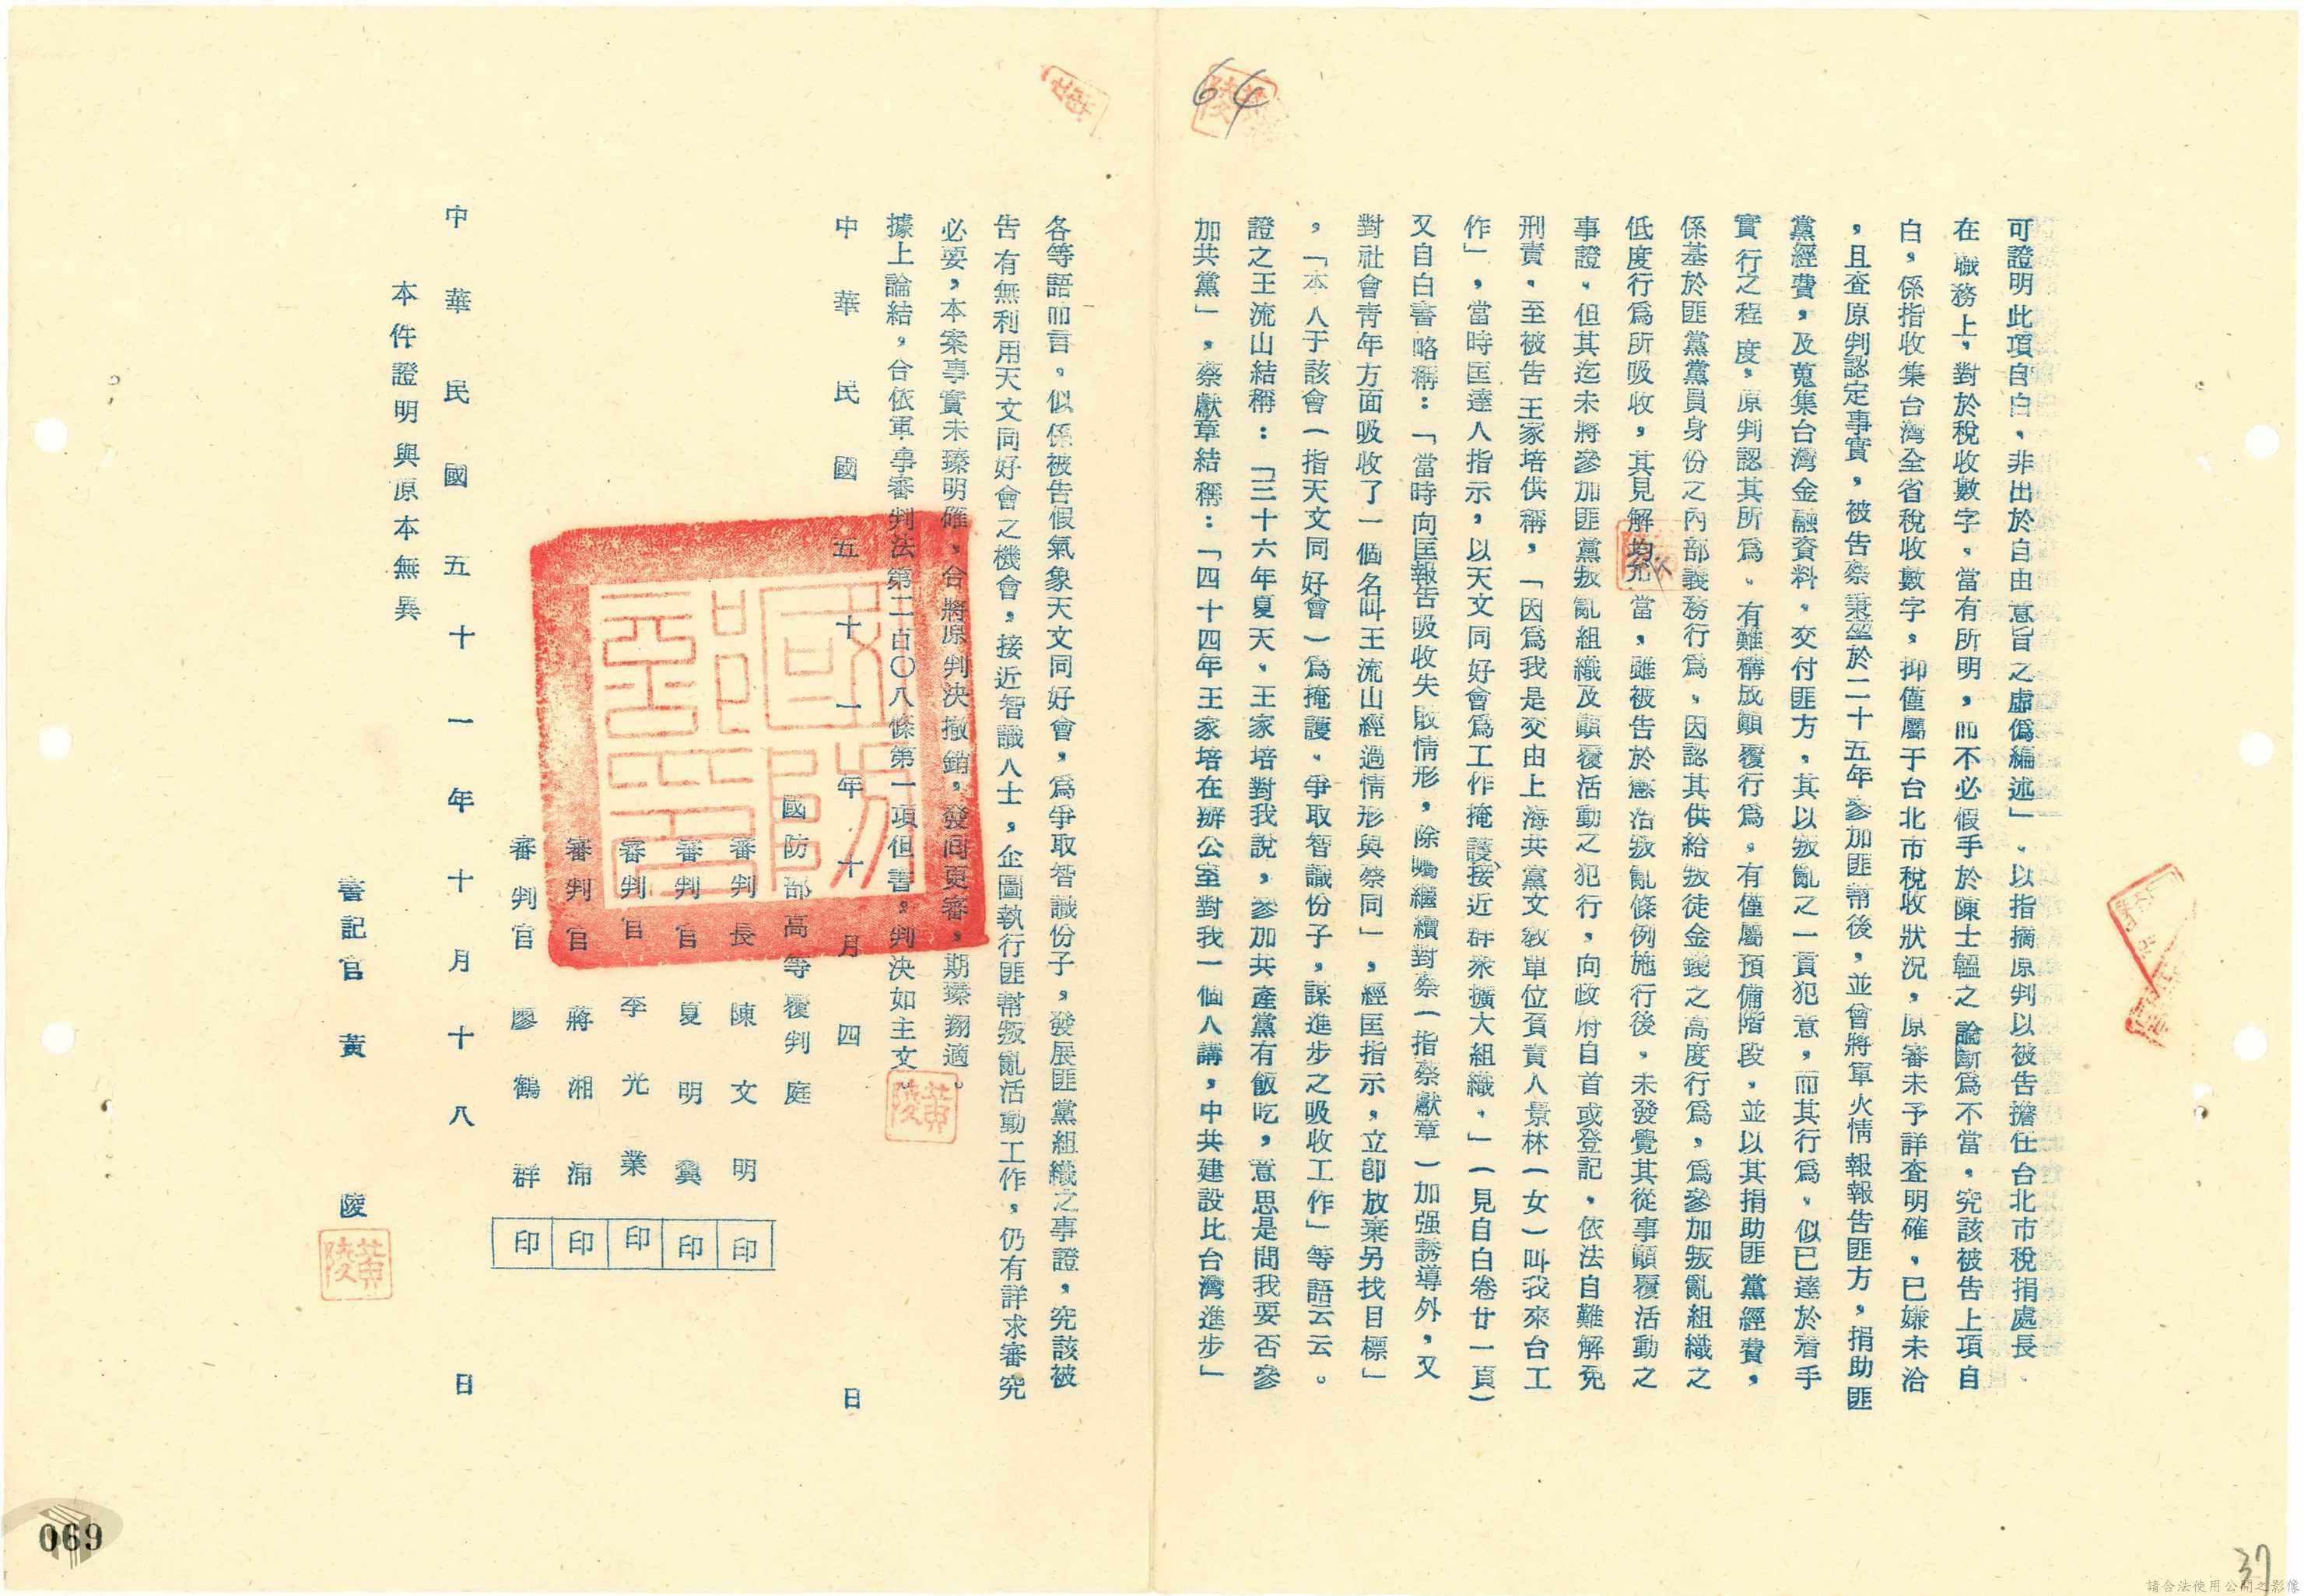 64
可證明此項自白、非出於自由意旨之虛僞編述」、以指摘原判以被告擔任台北市稅捐處長、
在職務上，對於稅收數字，當有所明，而不必假手於陳士韞之論斷爲不當。究該被告上項自
白，係指收集台灣全省稅收數字，抑僅屬于台北市稅收狀況，原審未予詳查明確，已嫌未洽
，且查原判認定事實，被告蔡秉堃於二十五年參加匪幫後，並曾將軍火情報報告匪方，捐助匪
黨經費，及蒐集台灣金融資料，交付匪方，其以叛亂之一貫犯意，而其行爲，似已達於着手
實行之程度，原判認其所爲，有難構成顛覆行爲，有僅屬預備階段，並以其捐助匪黨經費，
係基於匪黨黨員身份之內部義務行爲，因認其供給叛徒金錢之高度行爲，爲參加叛亂組織之
低度行爲所吸收，其見解均欠允當，雖被告於懲治叛亂條例施行後，未發覺其從事顛覆活動之
事證，但其迄未將參加匪黨叛亂組織及顛覆活動之犯行，向政府自首或登記，依法自難解免
刑責，至被告王家培供稱，「因爲我是交由上海共黨文教單位負責人景林（女）叫我來台工
作」，當時匡達人指示，以天文同好會爲工作掩護、接近群衆擴大組織。」（見自白卷廿一頁）
又自白書略稱：「當時向匡報告吸收失敗情形，除囑繼續對蔡（指蔡獻章）加强誘導外，又
對社會青年方面吸收了一個名叫王流山經過情形與蔡同」，經匡指示，立卽放棄另找目標」
，「本人于該會（指天文同好會）爲掩護，爭取智識份子，謀進步之吸收工作」等語云云。
證之王流山結稱：「三十六年夏天，王家培對我說，參加共產黨有飯吃，意思是問我要否參
加共黨」，蔡獻章結稱：「四十四年王家培在辦公室對我一個人講，中共建設比台灣進步」
各等語而言，似係被告假氣象天文同好會，爲爭取智識份子，發展匪黨組織之事證，究該被
告有無利用天文同好會之機會，接近智識人士，企圖執行匪幫叛亂活動工作，仍有詳求審究
必要，本案事實未臻明確，合將原判決撤銷，發回更審，期臻翔適。
據上論結，合依軍事審判法第二百〇八條第一項但書，判決如主文。
中華民國五十一年十月四日
國防部高等覆判庭
審判長 陳文明 印
審判官 夏明翼 印
審判官 李光業 印
審判官 蔣湘浦 印
審判官 廖鶴群 印
中華民國五十一年十月十八日
本件證明與原本無異
書記官 黃陵
黃陵
069
37
請合法使用公開之影像